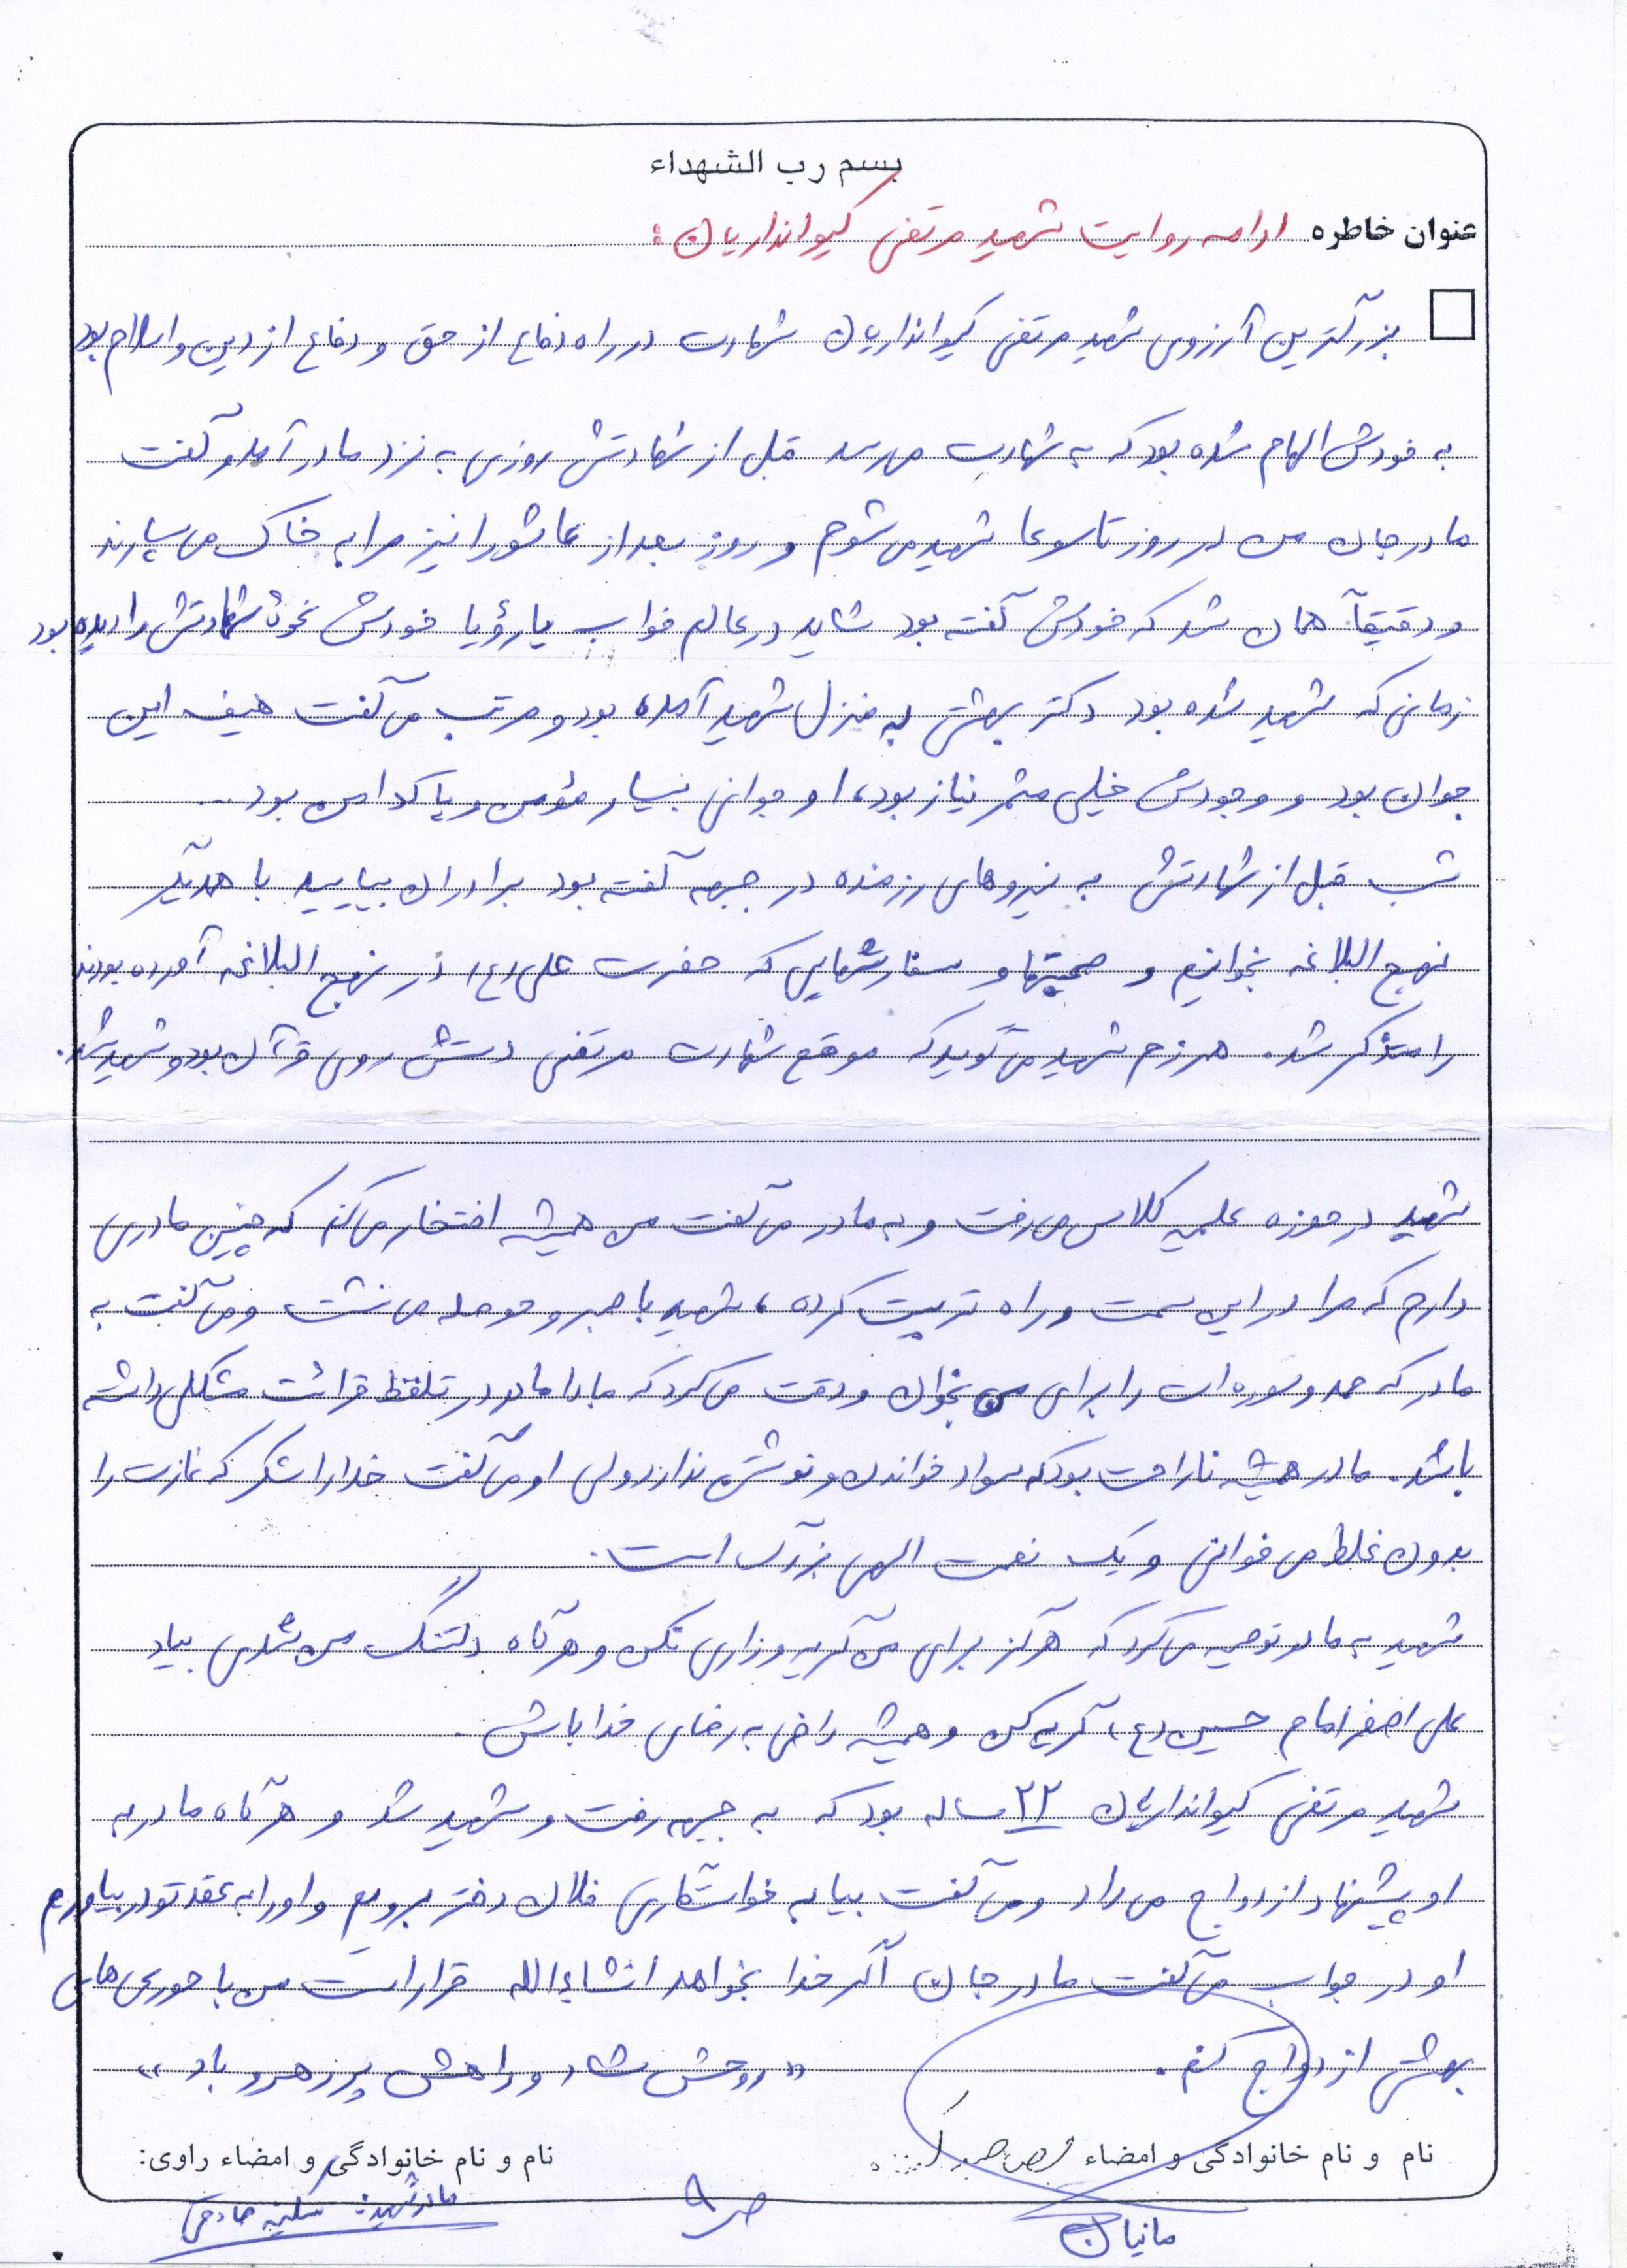 بسم رب الشهداء
عنوان خاطره ادامه روایت شهید مرتضی کیوانداریان :
بزرگترین آرزوی شهید مرتضی کیوانداریان شهادت در راه دفاع از حق و دفاع از دین و اسلام بود
به خودش الهام شده بود که به شهادت می‌رسد قبل از شهادتش روزی به نزد مادر آمد و گفت
مادر جان من در روز تاسوعا شهید می شوم و روز بعد از عاشورا نیز مرا به خاک می سپارند
و دقیقاً همان شد که خودش گفته بود شاید در عالم خواب یا رؤیا خودش نحوۀ شهادتش را دیده بود
زمانی که شهید شده بود دکتر بهشتی به منزل شهید آمده بود و مرتب می گفت حیف این
جوان بود و وجودش خیلی مثمر نیاز بود، او جوانی بسیار مؤمن و پاکدامن بود ...
شب قبل از شهادتش به نیروهای رزمنده در جبهه گفته بود برادران بیایید با همدیگر
نهج البلاغه بخوانیم و صحبتها و سفارشهایی که حضرت علی (ع) در نهج البلاغه آورده بودند
را متذکر شد. همرزم شهید می گوید که موقع شهادت مرتضی دستش روی قرآن بود و شهید شد.
شهید در حوزه علمیه کلاس می رفت و به مادر می گفت من همیشه افتخار می کنم که چنین مادری
دارم که مرا در این سمت و راه تربیت کرده، شهید با صبر و حوصله می نشست و می گفت به
مادر که حمد و سوره ات را برای من بخوان و دقت می کرد که مبادا مادر در تلفظ قرائت مشکلی داشته
باشد. مادر همیشه ناراحت بود که سواد خواندن و نوشتن ندارد ولی او می گفت خدا را شکر که نمازت را
بدون غلط می خوانی و یک نعمت الهی بزرگ است.
شهید به مادر توصیه می کرد که هرگز برای من گریه و زاری نکن و هرگاه دلتنگ من شدی بیاد
علی اصغر امام حسین (ع) گریه کن و همیشه راضی به رضای خدا باش.
شهید مرتضی کیواندارایان ۲۲ ساله بود که به جبهه رفت و شهید شد و هرگاه مادر به
او پیشنهاد ازدواج می داد و می گفت بیا به خواستگاری فلان دختر برویم و او را به عقد تو در بیاورم
او در جواب می گفت مادر جان اگر خدا بخواهد انشاءالله قرار است من با حوری های
بهشتی ازدواج کنم. «روحش شاد و راهش پر رهرو باد»
نام و نام خانوادگی و امضاء
نام و نام خانوادگی و امضاء راوی:
مانیان
ص ۹
مادر شهید: سکینه